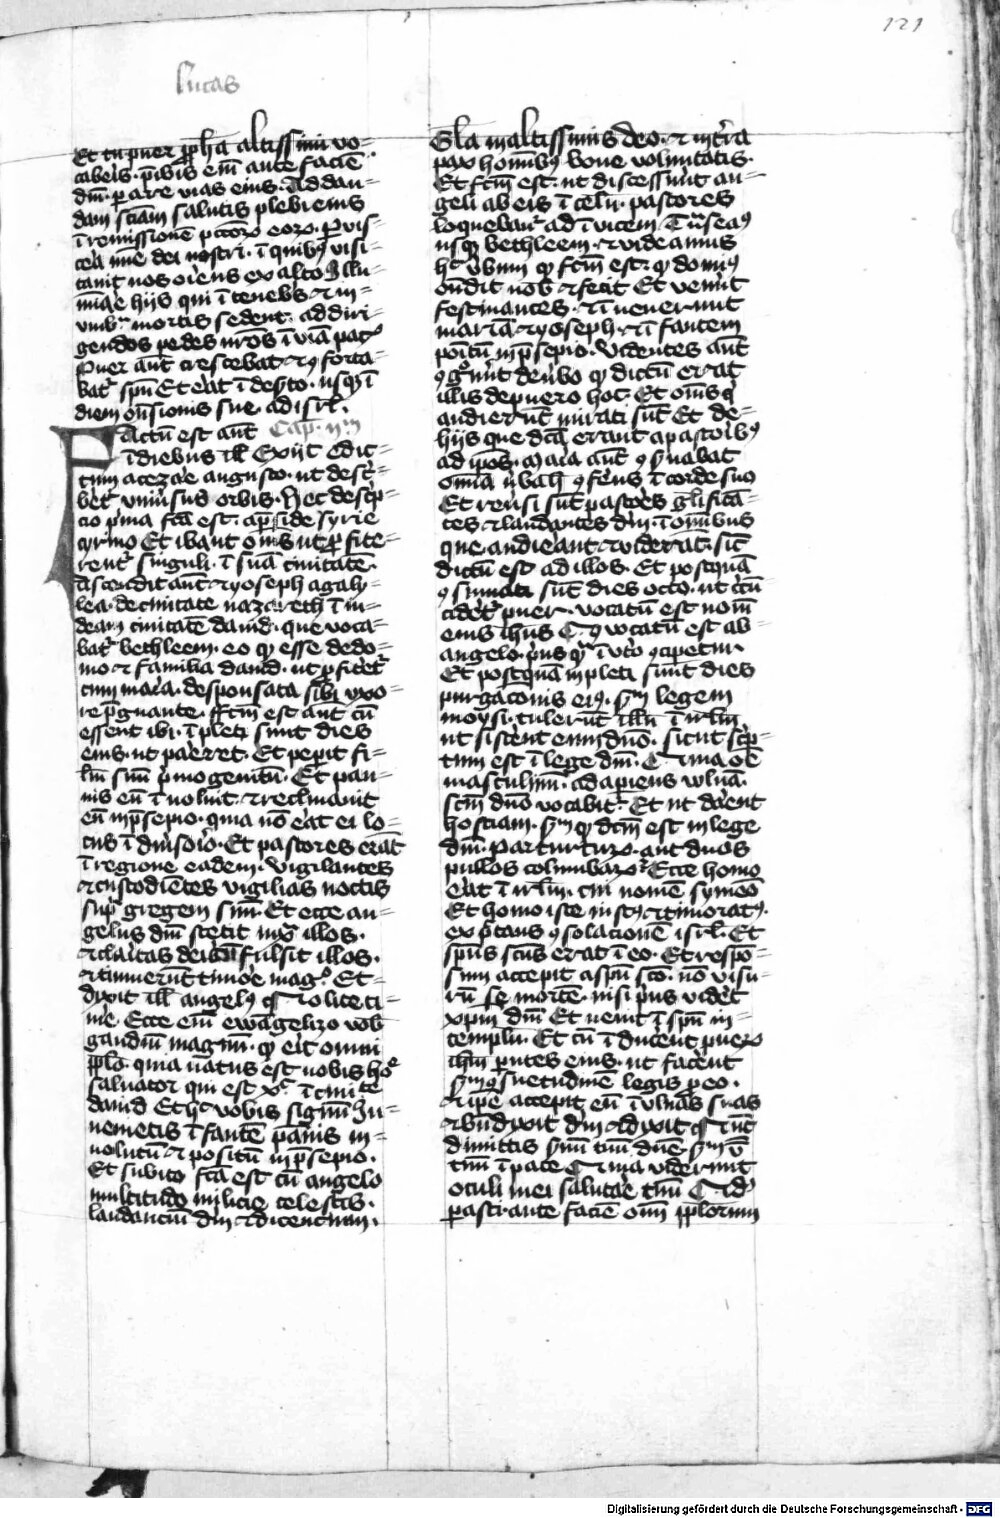 121
Lucas
Et tu puer ꝓph̄a altissimi vo-
caberis. p̄ibis em̄ ante faciē
dm̄. parare vias eius. Ad dan-
dam sciām salutis plebi eius
ī remissionē pctōꝝ eoꝝ. Per vis-
cera mīe dei nostri. ī quibꝰ visi-
tauit nos oriens ex alto Illu-
mīare hijs qui ī tenebris ⁊ in
vmbra mortis sedent. ad diri-
gendos pedes nr̄os ī viā pacis
Puer aūt crescebat ⁊ ꝯforta-
batr̄ spū Et erat ī deserto. usqꝫ ī
diem oñsionis sue. ad isrl̄.
Factum est aūt Cap. ijm
ī diebus ill̄ Exijt edic-
tum a cezare augusto. ut descri-
beretr̄ vniuersus orbis. Hec descrip-
cio prima fcā est. a preside syrie
cyrino Et ibant om̄s ut ꝓfite-
rentr̄ singuli. ī suā ciuitatē.
Ascendit aūt ⁊ yoseph a galy-
lea. de ciuitate nazareth ī iu-
deam ciuitatē dauid. que voca-
batr̄ bethleem. eo qꝫ esse de do-
mo ⁊ familia dauid. ut ꝓfiteretr̄
cum maria. desponsata sibi vxo-
re p̄gnante. Fctm̄ est aūt cū
essent ibi. īpleti sunt dies
eius. ut pareret. Et peperit fi-
liū suū primogenitū. Et pan-
nis eū īnoluit. ⁊ reclinauit
eū in p̄sepio. quia nō erat ei lo-
cus ī diuersorio. Et pastores erāt
ī regione eadem. vigilantes
⁊ custodiētes vigilias noctis
super gregem suū. Et ecce an-
gelus dm̄ stetit iuxta illos.
⁊ claritas dei fulsit illos.
⁊ timuerūt timore magͦ. Et
dixit ill̄ angelꝰ Nolite ti-
me. Ecce em̄ ewāgelizo vob
gaudiū magnū. qꝫ erit omni
pplo. quia natus est nobis hoͤ
saluator qui est xc̄ ī ciuite
dauid Et hͨ vobis signū Iu-
uenietis īfantē pannis in-
uolutū ⁊ positū in p̄sepio.
Et subito fcā est cū angelo
multitudo milicie celestis.
laudanciū dm̄ ⁊ dicencium.
Gl̄a in altissimis deo. ⁊ in tr̄a
pax hominibꝰ bone voluntatis.
Et fctm̄ est. ut discesserūt an-
geli ab eis ī celū. pastores
loquebantr̄ ad ī vicem Trāseamꝰ
usqꝫ bethleem. ⁊ videamus
hͨ vbum qꝫ fctm̄ est. qꝫ dominꝰ
ondit nob̄ ⁊ fecit Et venerūt
festinantes. ⁊ īuenerunt
mariā ⁊ yoseph. ⁊ īfantem
positū in p̄sepio. Videntes aūt
ꝯgͦuerūt de verbo qꝫ dictū erat
illis de puero hoc. Et om̄s qui
audierūt mirati sūt Et de
hijs que dcā erant a pastoribꝰ
ad ipos. Maria aūt ꝯseruabat
omnia verba hec ꝯferens ī corde suo
Et reuersi sūt pastores gl̄ifican-
tes ⁊ laudantes dm̄. ī omnibus
que. audierant ⁊ viderāt. sicut
dictū est ad illos. Et postquā
ꝯsumati sūt dies octo. ut circū
cideretr̄ puer. vocatū est nomē
eius ihūs qꝫ vocatū est ab
angelo. prius qm̄ ī vtero ꝯciperetur.
Et postquā impleti sunt dies
purgaconis eiꝰ. scdm legem
moysi. tulerūt illū ī irlm̄
ut sisterent eum dno. sicut scrip-
tum est ī lege dm̄. Quia oē
masculinū. adaperiens vuluā.
scm̄ dno vocabitr̄. Et ut darent
hostiam. scdm qꝫ dcm̄ est in lege
dm̄. Par turturꝝ. aut duos
pullos columbarꝝ. Ecce homo
erat ī irlm̄. cui nomē symeō
Et homo iste iustꝰ ⁊ timoratꝰ.
expectans ꝯsolacionē isrl̄. Et
spūs scūs erat ī eo. Et respon-
sum accepit a spū sco. nō visu-
rū se mortē. nisi prius videret
xpm dm̄ Et venit ī spū in
templū. Et cū īducerent puerꝝ
ihm̄ parentes eius. ut facerent
scdm ꝯsuetudinē legis pro eo.
⁊ ipe accepit eū ī vlnas suas
⁊ bndixit dm̄ ⁊ dixit Nūc
dimittis seruū tuū. dne scdm v̄
tuū ī pace Quia viderunt
oculi mei salutare tuū Qd
parasti. ante faciē om̄ pplorum
Digitalisierung gefördert durch die Deutsche Forschungsgemeinschaft - DFG